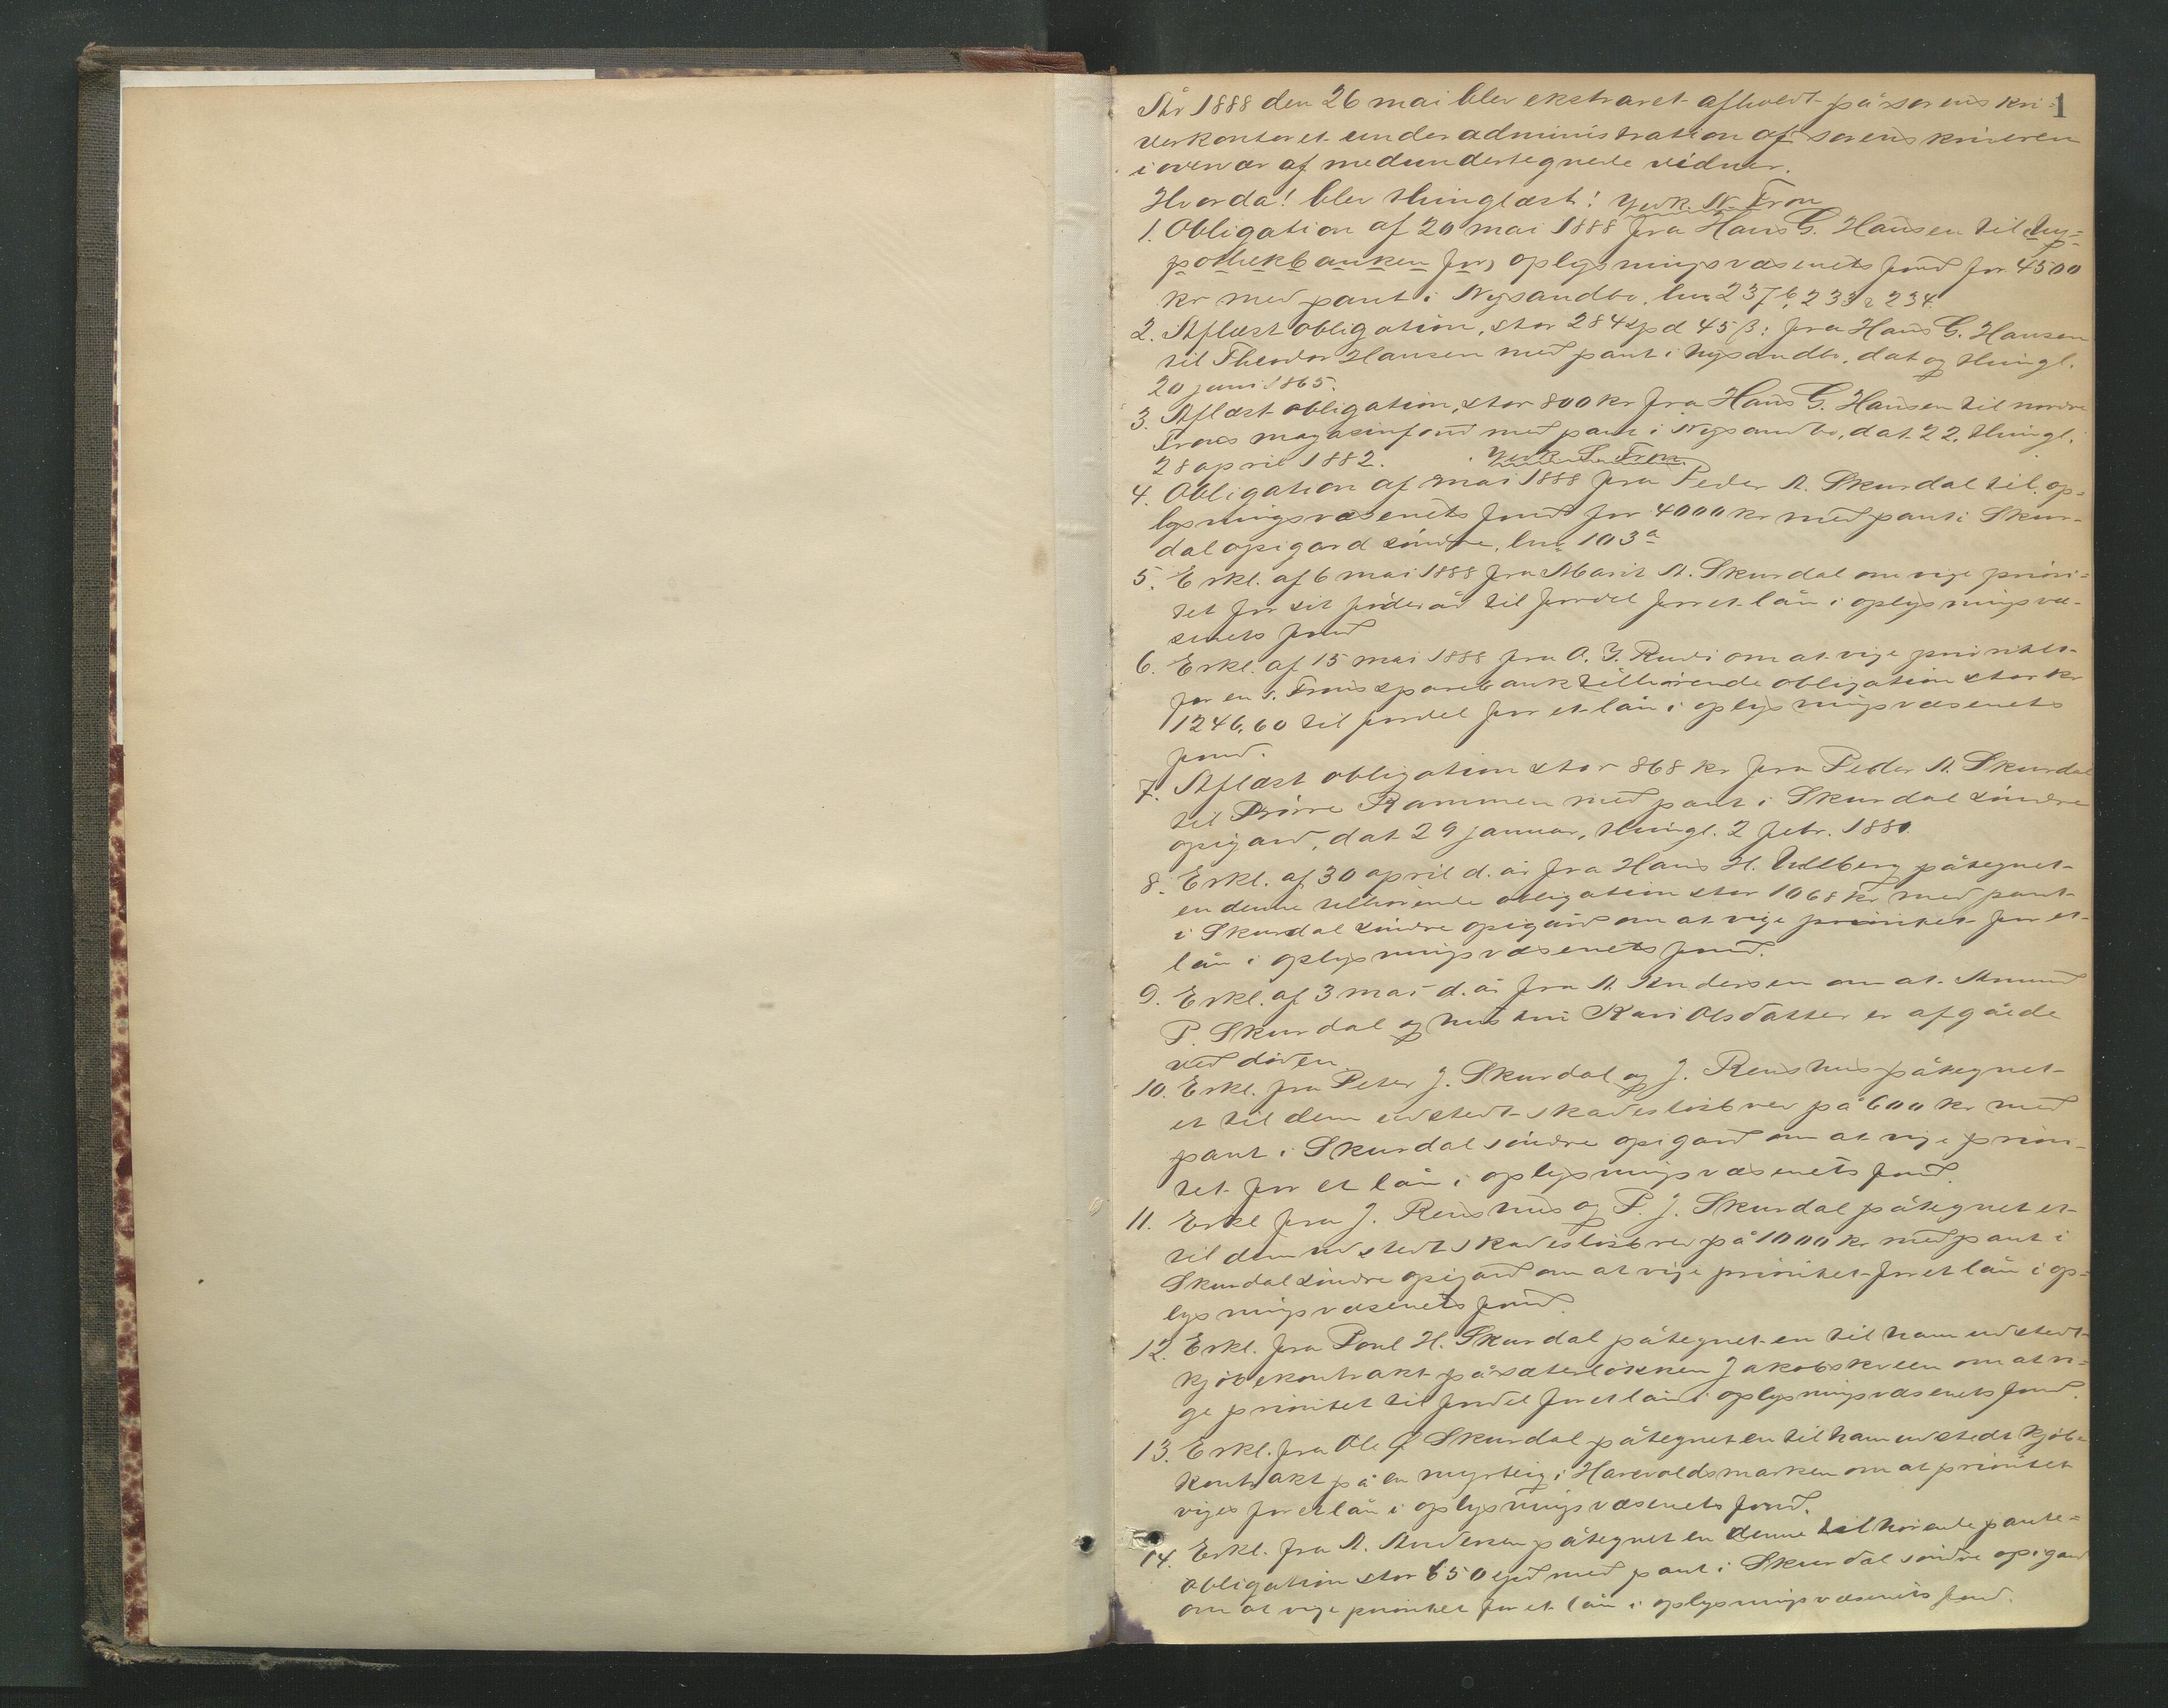 1
År 1888 den 26 mai blev ekstraret afholdt på sorenskri=
verkontoret under administration af sorenskriveren
i overvær af medundertegnede vidner.
Hvorda! blev thinglæst: Vedk. N. Fron
1. Obligation af 20 mai 1888 fra Hans G. Hansen til hy=
pothekbanken for oplysningsvæsenets fond for 4500
kr med pant i Nysandbo, lno 237b, 233 & 234.
2. Aflæst obligation, stor 284 spd 45 β: fra Hans G. Hansen
til Theodor Hansen med pant i Nysandbo, dat og thingl.
20 juni 1865.
3. Aflæst obligation, stor 800 kr fra Hans G. Hansen til nordre
Frons magasinfond med pant i Nysandbo, dat 22, thingl.
28 april 1882. Vedk. S. Fron.
4. Obligation af mai 1888 fra Peder A. Skurdal til op=
lysningsvæsenets fond for 4000 kr med pant i Skur-
dal opigard søndre, lno 103a
5. Erkl. af 6 mai 1888 fra Marit A. Skurdal om vige priori=
tet for sit føderåd til fordel for et lån i oplysningsvæ-
senets fond
6. Erkl. af 15 mai 1888 fra O. J. Rudi om at vige prioritet
for en s. Frons sparebank tilhørende obligation stor kr
1246,60 til fordel for et lån i oplysningsvæsenets
fond.
7. Aflæst obligation stor 868 kr fra Peder A. Skurdal
til Rammen med pant i Skurdal søndre
opigard, dat 29 januar, thingl. 2 febr. 1881.
8. Erkl. af 30 april d. år fra Hans H. Ulleberg påtegnet
en denne tilhørende obligation stor 1068 kr med pant
i Skurdal søndre opigård om at vige prioritet for et
lån i oplysningsvæsenets fond.
9. Erkl. af 3 mai d. år fra A. Andersen om at Amund
P. Skurdal og hustru Kari Olsdatter er afgåede
ved døden
10. Erkl. fra Peter J. Skurdal og J. Renshus påtegnet
et til dem udstedt skadesløsbrev på 600 kr med
pant i Skurdal søndre opigard om at vige priori-
tet for et lån i oplysningsvæsenets fond.
11. Erkl fra J. Renshus og P. J. Skurdal påtegnet et
til dem udstedt skadesløsbrev på 1000 kr med pant i
Skurdal søndre opigard om at vige prioritet for et lån i op=
lysningsvæsenets fond.
12. Erkl. fra Poul H. Skurdal påtegnet en til ham udstedt
kjøbekontrakt på sæterløkken Jakobskveen om at vi=
ge prioritet til fordel for et lån i oplysningsvæsenets fond.
13. Erkl. fra Ole Skurdal påtegnet en til ham udstedt kjøbe
kontrakt på en myrteig i Harevoldsmarken om at prioritet
viges for et lån i oplysningsvæsenets fond.
14. Erkl. fra A. Andersen påtegnet en denne tilhørende pante=
obligation stor 650 spd med pant i Skurdal søndre opigard
om at vige prioritet for et lån i oplysningsvæsenets fond.